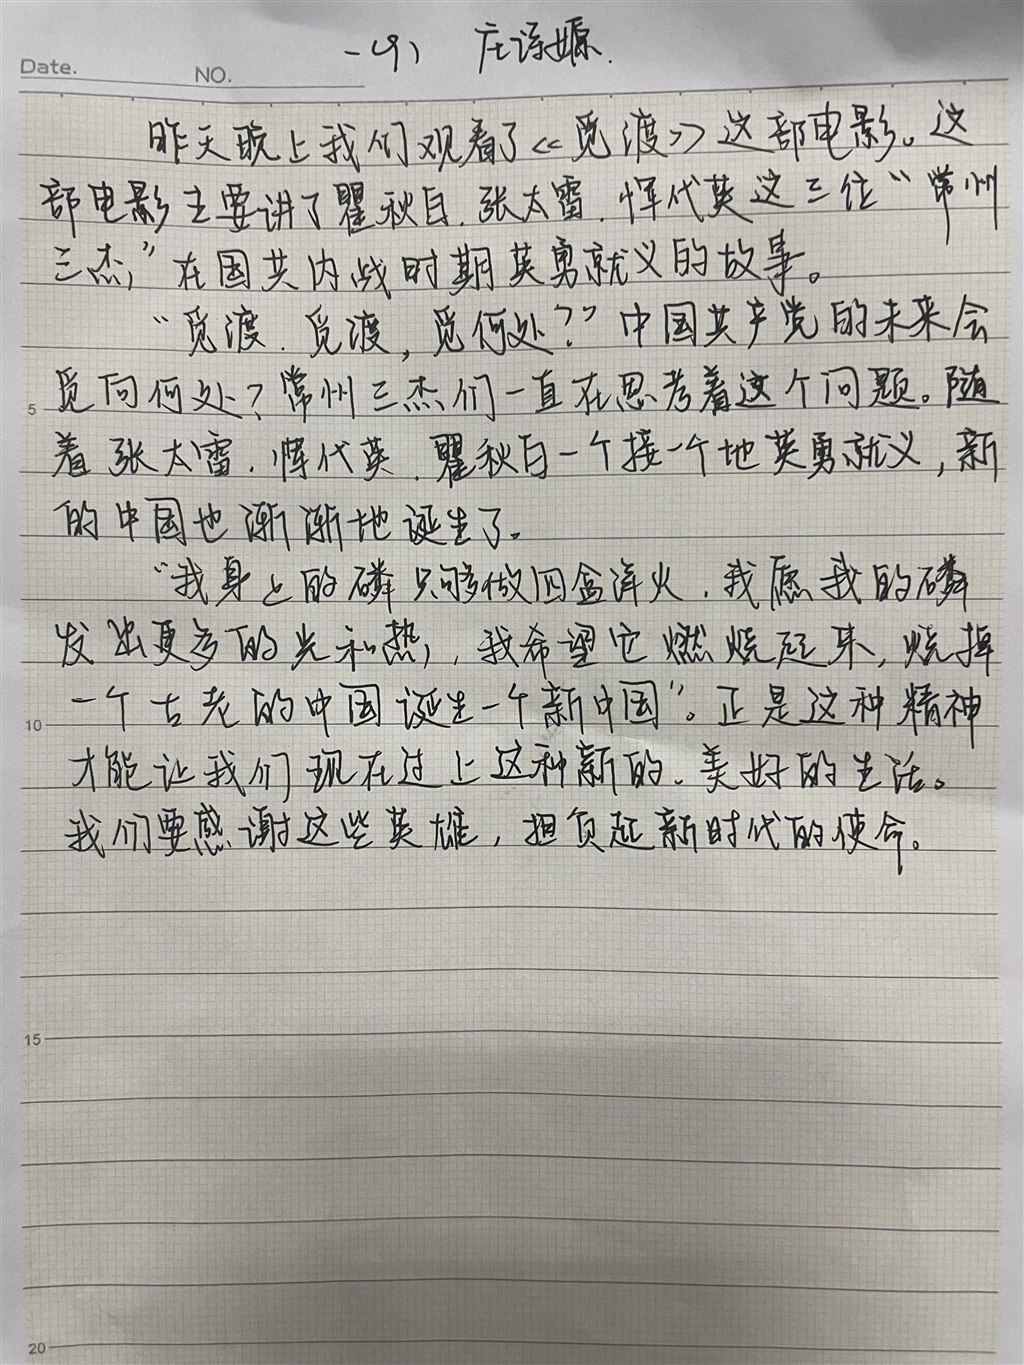 一(9) 庄诗嫄.
Date.
NO.
昨天晚上我们观看了《觅渡》这部电影。这
部电影主要讲了瞿秋白、张太雷、恽代英这三位“常州
三杰”在国共内战时期英勇就义的故事。
“觅渡、觅渡,觅何处?”中国共产党的未来会
5 觅向何处?常州三杰们一直在思考着这个问题。随
着张太雷、恽代英、瞿秋白一个接一个地英勇就义,新
的中国也渐渐地诞生了。
“我身上的磷只够做四盒洋火,我愿我的磷
发出更多的光和热,我希望它燃烧起来,烧掉
10 一个古老的中国诞生一个新中国”。正是这种精神
才能让我们现在过上这种新的、美好的生活。
我们要感谢这些英雄,担负起新时代的使命。
15
20